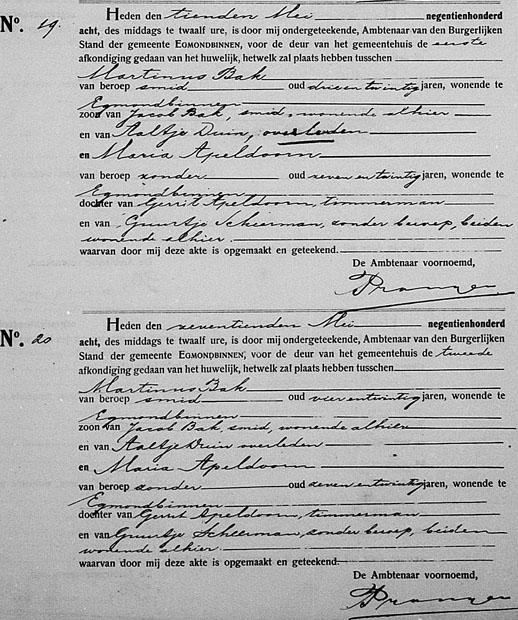 No. 19. Heden den tienden Mei negentienhonderd
acht, des middags te twaalf ure, is door mij ondergeteekende, Ambtenaar van den Burgerlijken
Stand der gemeente EGMONDBINNEN, voor de deur van het gemeentehuis de eerste
afkondiging gedaan van het huwelijk, hetwelk zal plaats hebben tusschen
Martinus Bak
van beroep smid oud drieentwintig jaren, wonende te
Egmondbinnen
zoon van Jacob Bak, smid, wonende alhier
en van Aaltje Duin, overleden
en Maria Apeldoorn
van beroep zonder oud zevenentwintig jaren, wonende te
Egmondbinnen
dochter van Gerrit Apeldoorn, timmerman
en van Guurtje Scheerman, zonder beroep, beiden
wonende alhier
waarvan door mij deze akte is opgemaakt en geteekend.
De Ambtenaar voornoemd,
No. 20 Heden den zeventienden Mei negentienhonderd
acht, des middags te twaalf ure, is door mij ondergeteekende, Ambtenaar van den Burgerlijken
Stand der gemeente EGMONDBINNEN, voor de deur van het gemeentehuis de tweede
afkondiging gedaan van het huwelijk, hetwelk zal plaats hebben tusschen
Martinus Bak
van beroep smid oud vierentwintig jaren, wonende te
Egmondbinnen
zoon van Jacob Bak smid, wonende alhier
en van Aaltje Duin overleden
en Maria Apeldoorn
van beroep zonder oud zevenentwintig jaren, wonende te
Egmondbinnen
dochter van Gerrit Apeldoorn, timmerman
en van Guurtje Scheerman, zonder beroep, beiden
wonende alhier
waarvan door mij deze akte is opgemaakt en geteekend.
De Ambtenaar voornoemd,